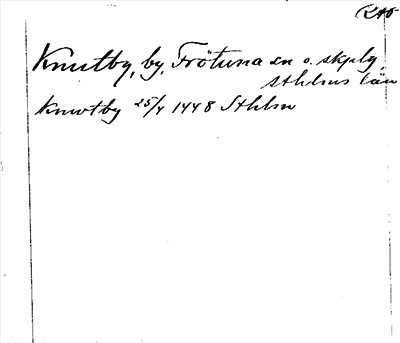 RAO
Knutby, by, Frötuna sn o. skplg,
Sthlms län
Knwtby 25/4 1448 Sthlm